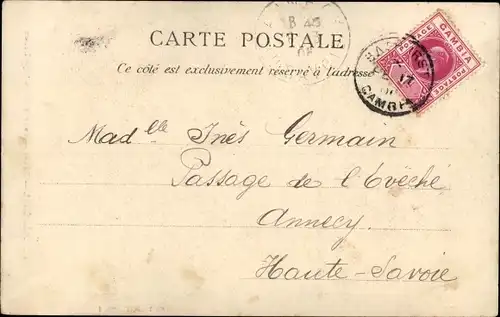 CARTE POSTALE
Ce côté est exclusivement réservé à l'adresse
POSTAGE
GAMBIA
POSTAGE
Madelle Inès Germain
Passage de l'Evêché
Annecy
Haute-Savoie